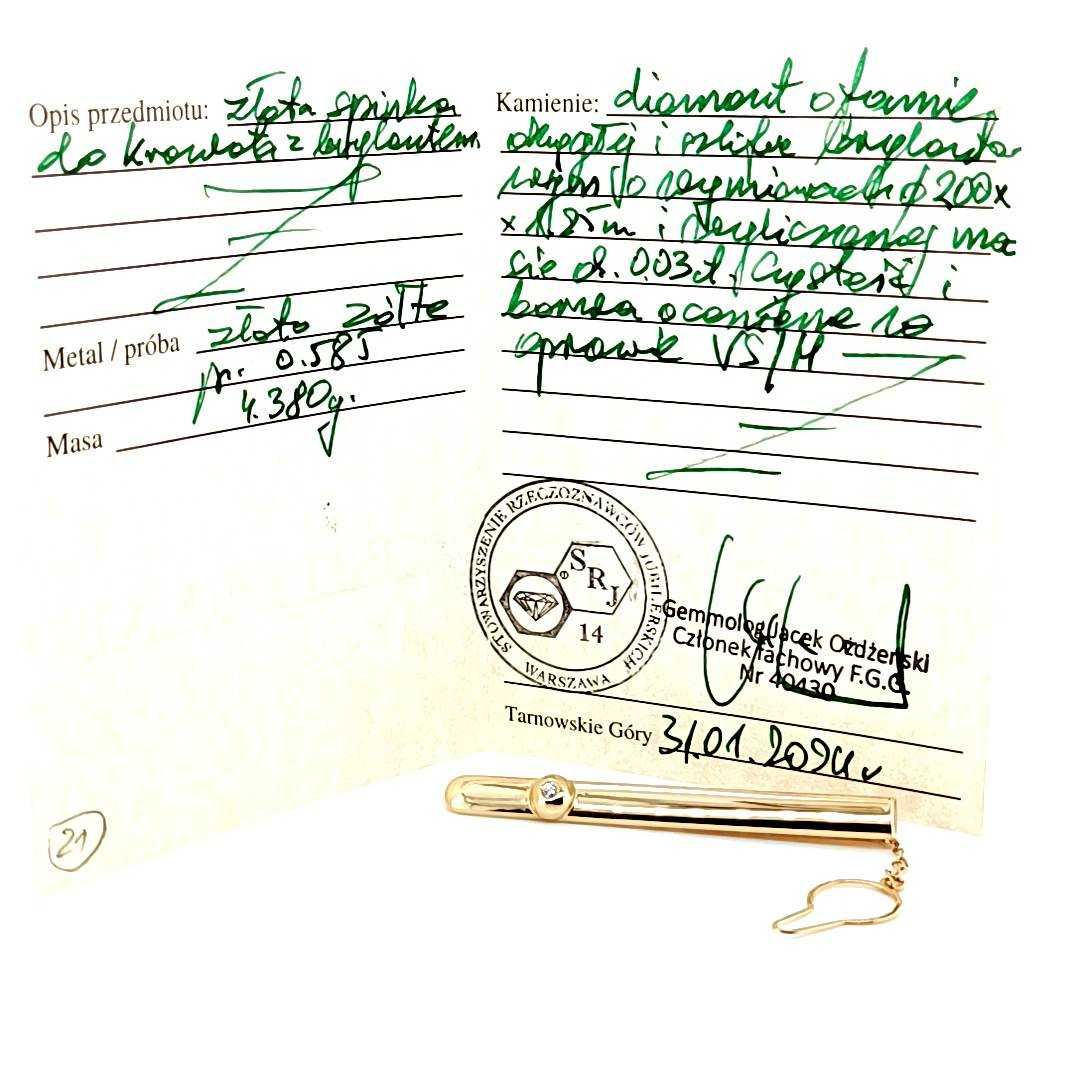 Opis przedmiotu: złota spinka
do krawata z brylantem
Metal / próba złoto żółte
pr. 0.585
4.380g.
Masa
21
Kamienie: diament o formie
okrągłej i szlifie
o wymiarach ϕ 200x
x 1.85m i wyliczonej ma
sie ok. 0.03ct. (Czystość i
barwa oceniona
oprawie VS/H
STOWARZYSZENIE RZECZOZNAWCÓW JUBILERSKICH
WARSZAWA
SRJ
14
Gemmolog Jacek Ożdżeński
Członek fachowy F.G.G.
Nr 40430
Tarnowskie Góry 31.01.2024r